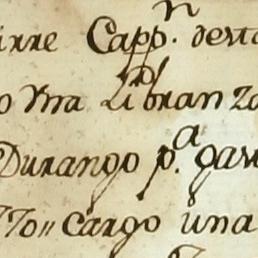 irre Cappn. desta
o Vna Libranza
Durango p.a gas
To = Cargo Una